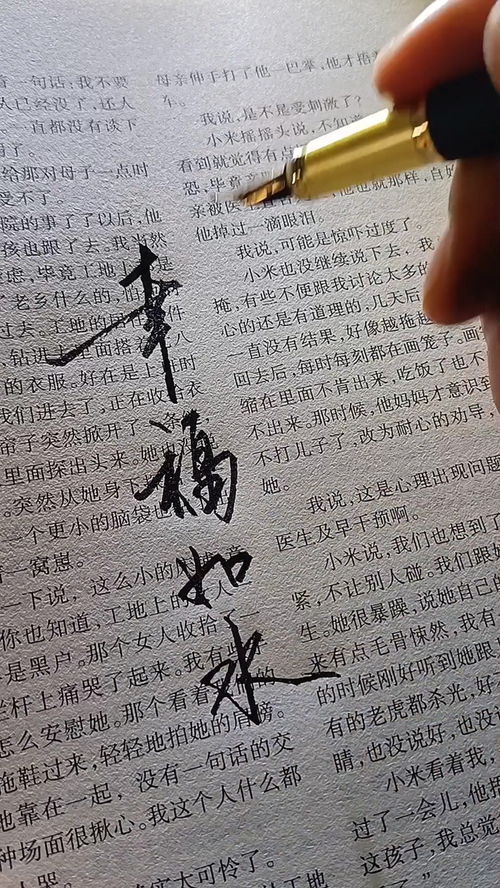 言一句话：我不要
人已经没了，还人
一直都没有谈下
给那对母子一点时
受不了
院的事了了以后，他
孩也跟了去。我当然
虑，毕竟工地上
老乡什么的，
过去。工地的居住
钻进
里面搭
的衣服。好在是上
我们进去了，正在收
帘子突然掀开了
里面探出头来。她
。突然从她身下
一个更小的脑袋也
一窝崽。
一下说，这么小的
你也知道，工地上的
是黑户。那个女人收拾了
栏杆上痛哭了起来。我有
怎么安慰她。那个看着
拖鞋过来，轻轻地拍她的肩膀。
地靠在一起，没有一句话的交
种场面很揪心。我这个人什么都
哭。
实太可怜了。
工地
母亲伸手打了他一巴掌，他才捂着
车。
我说，是不是受刺激了？
小米摇摇头说，不知道
看到就觉得有点
恐，毕竟
亲被医生
，他也就那样，自始
他掉过一滴眼泪。
我说，可能是惊吓过度了。
小米也没继续说下去，我
掩，有些不便跟我讨论太多的
心的还是有道理的，几天后
一直没有结果，好像越拖越
回去后，每时每刻都在画笼子。画
缩在里面不肯出来，吃饭了也不
不出来。那时候，他妈妈才意识到
不打儿子了，改为耐心的劝导，
她。
我说，这是心理出现问题
医生及早干预啊。
小米说，我们也想到了
紧，不让别人碰。我们跟她
生。她很暴躁，说她自己
来有点毛骨悚然，我有
的时候刚好听到她跟
有的老虎都杀光，好
睛，也没说好，也没
小米看着我，
过了一会儿，他把
这孩子，我总觉
幸福如水